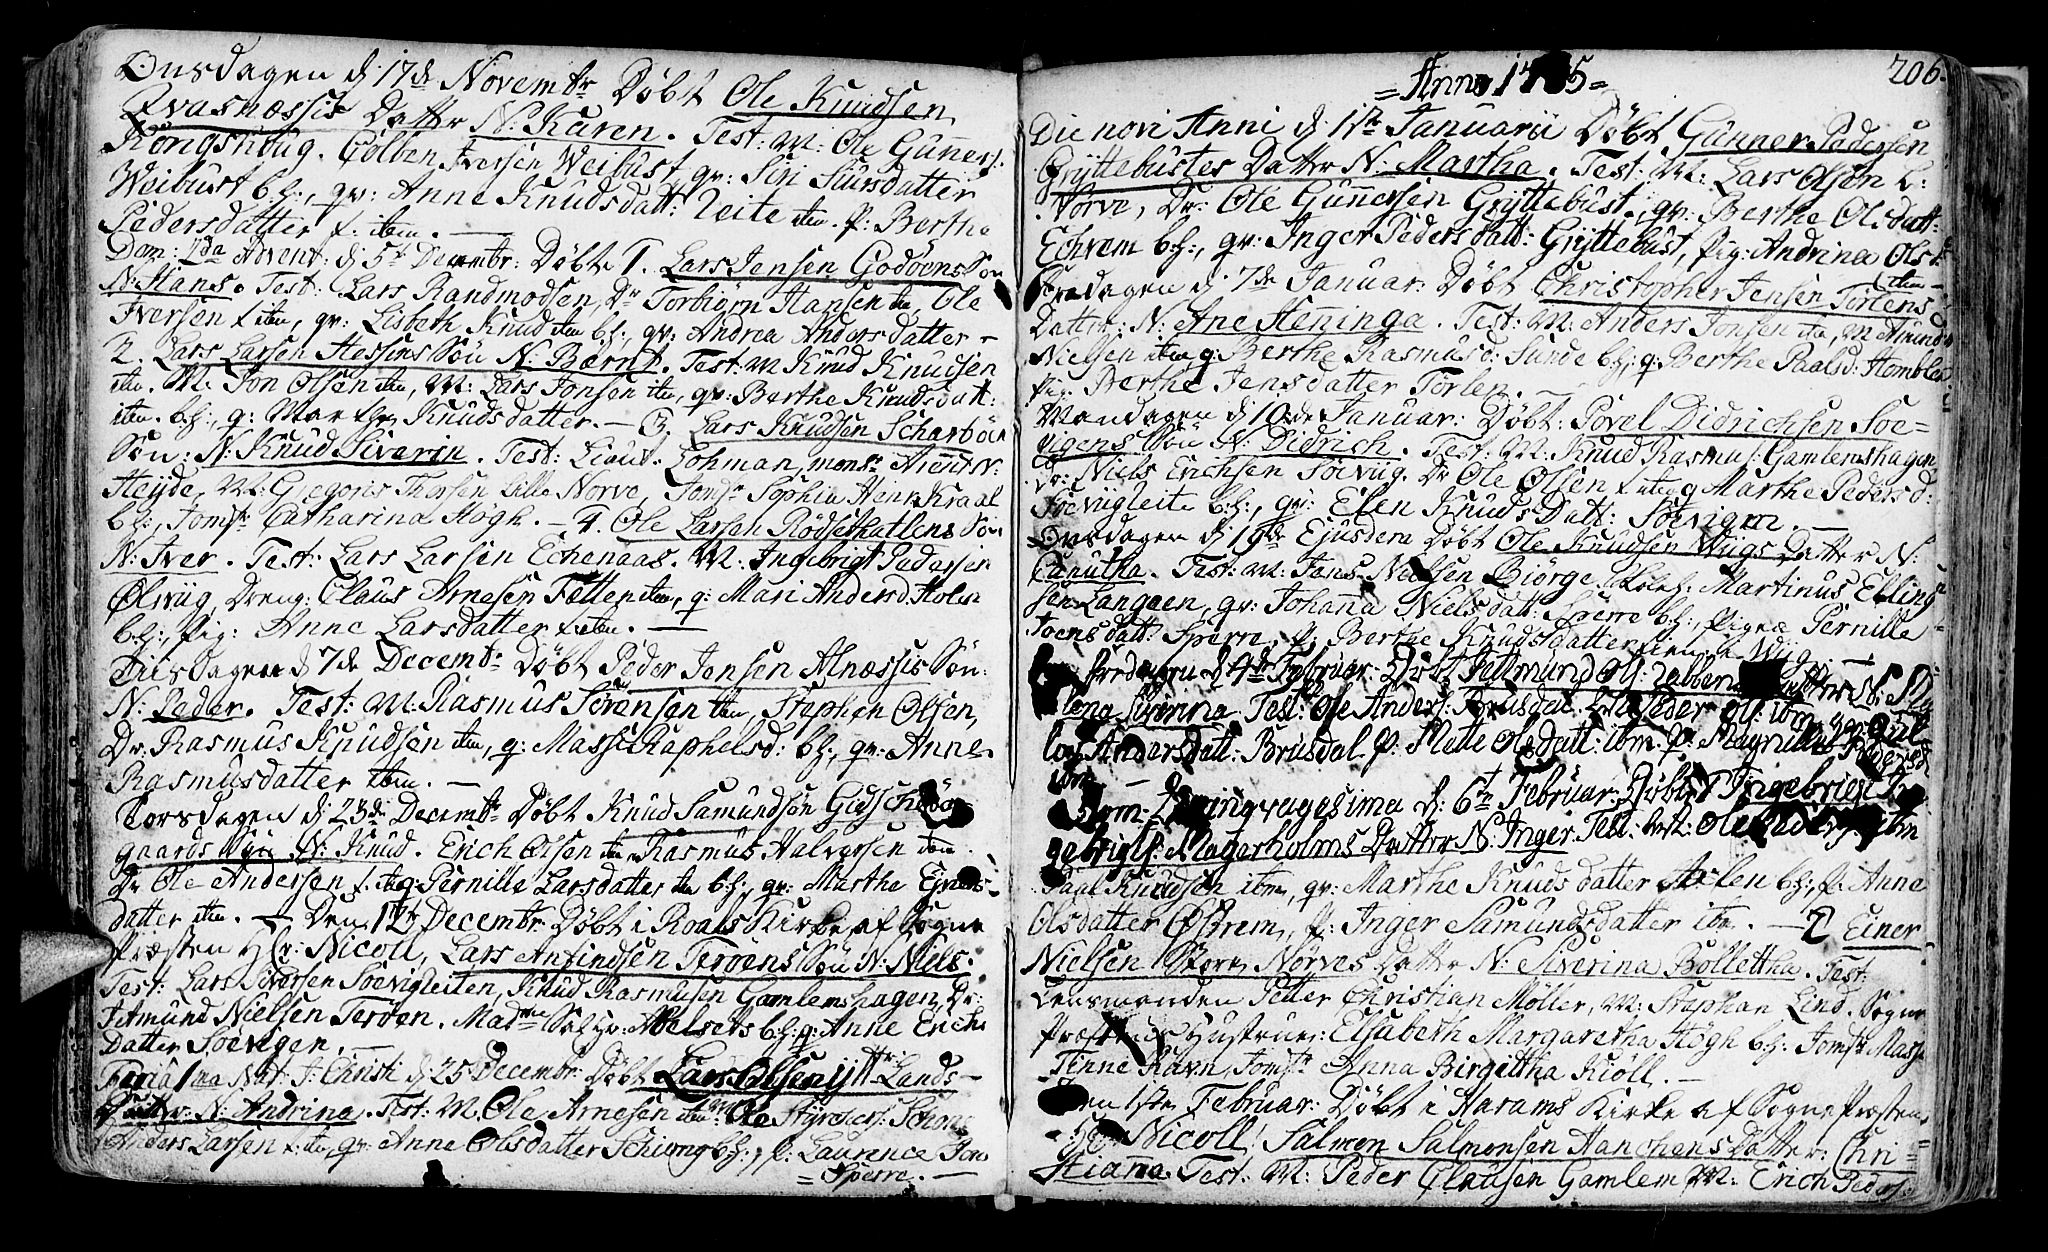 Onsdagen d: 17de Novembr Døbt Ole Knudsen
Qvasnæssis Datter N: Karen. Test: M: Ole Gunners:
Kongshoug. Colben Iversen Weibust, gv: Siri Siursdatter
Weibust b:h:, gv: Anne Knudsdatt: Leite ibm. P: Berthe
Pedersdatter f. ibm. —
Dom: 2da Advent: d: 5t Decembr: Døbt 1. Lars Jensen Godøens Søn
N: Hans. Test: Lars Randmodsen, Dr Torbiørn Hansen ibm, Ole
Iversen f ibm, gv: Lisbeth Knud ibm b:h:, gv: Andrea Andersdatter –
2. Lars Larsen Hessens Søn N: Bærnt. Test: M Knud Knudsen
ibm. M. Jon Olsen ibm, M: Lars Jonsen ibm, gv: Berthe Knudsdatt:
ibm. b:h:, g: Marthe Knudsdatter. – 3. Lars Knudsen Scharbøe
Søn: N: Knud Siverin. Test: Lieut: Lohman, monsr Arent v:
Heyde, M: Gregoris Thorsen Lille Norve, Jomfr Sophia Henr: Kraal
b:h:, Jomfr: Catharina Høgh. – 4. Ole Larsen Rødsethatlens Søn
N: Iver. Test: Lars Larsen Echenaas. M: Ingebrigt Pedersen
Ølsviig, Dreng: Claus Arnesen Fætten ibm, g: Mari Andersd: Holen
b:h:, Pig: Anne Larsdatter f. ibm. —
Tiisdagen d: 7de Decembr Døbt Peder Jensen Alnæssis Søn:
N: Peder. Test: M: Rasmus Sørensen ibm, Stephen Olsen,
Dr. Rasmus Knudsen ibm, g: Massi Raphelsd: b:h:, gv: Anne
Rasmusdatter ibm. —
Torsdagen d: 23de Decembr Døbt Knud Samundsøn Gidsche
gaards Søn N: Knud. Erich Olsen ibm, Rasmus Halversen ibm.
Dr Ole Andersen f. ibm g: Pernille Larsdatter ibm b:h:, gv: Marthe
datter ibm. – Den 12te Decembr Døbt i Roalds Kirke af Sogne
Præsten Hr: Nicoll, Lars Anfindsen Terøens Søn N: Niels.
Test: Lars Iversen Søevigleiten, Knud Rasmusen Gamlemshagen, Dr:
Amund Nielsen Terøen. Madme b:h: g: Anne Erichs
Datter Søevigen. —
Feria 1ma Nat: J: Christi d: 25 Decembr: Døbt Lars Olsen Lands
Datter: N: Andrina. Test: M. Ole Arnesen ibm M Ole Styrchers: Schong
Anders Larsen f: ibm, gv: Anne Olsdatter Schiong b:h:, P: Laurence Jon
= Sperre. —
206.
= Anno 1785 =
Die novi Anni d: 1ste Januarii Døbt Gunner Pedersen
Gryttebustes Datter N: Martha. Test: M: Lars Olsen L:
Norve, Dr: Ole Gunnersen Gryttebust, gv: Berthe Olsdatt:
Echrem b:h:, gv: Inger Pedersdatt: Gryttebust, Pig: Andrina Ols
ibm –
Fredagen d: 7de Januar: Døbt Christopher Jensen Tørlens
Datter: N: Ane Henninga. Test: M: Anders Jonsen ibm, M Amund
Nielsen ibm g: Berthe Rasmusd: Sunde b:h: g: Berthe Paalsd: Homblen
Pig: Berthe Jensdatter Tørlen. —
Mandagen d: 10de Januar: Døbt: Povel Didrichsen Søe-
vigens Søn N: Didrich. Test: M: Knud Rasmus: Gamlemshagen,
Dr: Niels Erichsen Søeviig. Dr Ole Olsen f ibm g Marthe Pedersd:
Søeviigleite b:h:, gv: Elen Knuds Datt: Søevigen. —
Onsdagen d: 19de Ejusdem Døbt Ole Knudsen Wiigs Datter N:
Canutha. Test: M: Jens Nielsen Biørge, Martinus Elling
sen Langøen, gv: Johanna Nielsdatt: Sperre b:h:, Pigen Pernille
Joensdatt: Sperre, P: Berthe Knudsdatter Wiig. —
Fredagen d: 4de Februar: Døbt Ols: Datter N:
lena Siverina. Test: Ole Anders: Brusdal, Peder Ols: ibm
Andersdatt: Brusdal P: Mette Olsdatt: ibm. P: Magnilla Pedersd
ibm —
Dom: Qvinqvagesima d: 6te Februar: Døbt 1 Ingebrigt
gebrigts: Magerholms Datter N: Inger. Test: M: Ole Peders: ibm
Paal Knudsen ibm, gv: Marthe Knudsdatter b:h:, P: Anne
Olsdatter Østrem, P: Inger Samundsdatter ibm. – 2 Einer
Nielsen Store Nørves Datter N: Siverina Bollettha. Test:
Lensmanden Petter Christian Møller, M: Stephan Lind. Sogne
Præstens Hustrue: Elsabeth Margaretha Høgh b:h: Jomfr Mass
Tinne Ravn, Jomfr Anna Birgittha Kiøll. —
Den 1ste Februar: Døbt i Harams Kirke af Sogne Præsten
Hr: Nicoll, Salmon Salmonsen Hanchens Datter: Chri
stianna. Test: M: Peder Clausen Gamlem, M: Erich Peders: